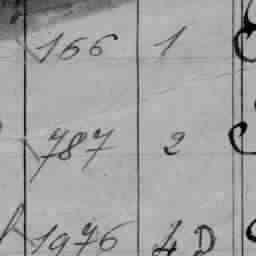 166 1
787 2
1976 4 D